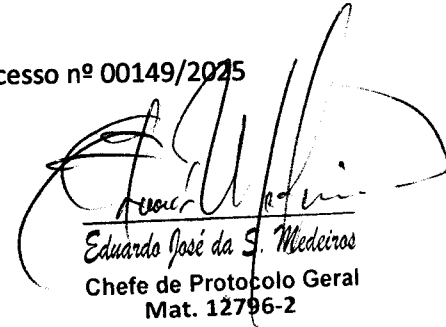 cesso nº 00149/2025
Eduardo José da S. Medeiros
Chefe de Protocolo Geral
Mat. 12796-2